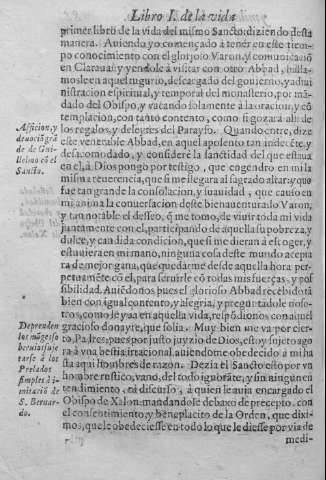 Libro I. de la vida
primer libro de la vida del mismo Sancto: diziendo desta
manera. Auiendo yo començado à tener en este tiem-
po conocimiento con el glorioso Varon, y comunicación
en Claraual: y yendole à visitar con otro Abbad, halla-
mosle en aquel tugurio, descargado del gouierno, y admi
nistracion espiritual, y temporal del monasterio, por mã-
dado del Obispo, y vacando solamente à la oracion, y cõ
templacion, con tanto contento, como si gozara alli de
los regalos, y deleytes del Parayso. Quando entre, dize
este venerable Abbad, en aquel aposento tan indecẽte, y
desacomodado, y consideré la sanctidad del que estaua
en el, à Dios pongo por testigo, que engendro en mi la
misma reuerencia, que si me llegara al sagrado altar: y que
fue tan grande la consolacion, y suauidad, que causo en
mi anima la conuersacion deste bienauenturado Varon,
y tan notable el desseo, q̃ me tomo, de viuir toda mi vida
juntamente con el, participando de aquella su pobreza, y
dulce, y candida condicion, que si me dieran à escoger, y
estuuiera en mi mano, ninguna cosa deste mundo acepta
ra de mejor gana, que quedarme desde aquella hora per-
petuamẽte cõ el, para seruirle cõ todas mis fuerças, y pos
sibilidad. Auiẽdonos pues el glorioso Abbad recebido tã
bien con igual contento, y alegria, y preguntadole noso-
tros, como le yua en aquella vida, respõdionos con aquel
gracioso donayre, que solia. Muy bien me va por cier-
to, Padres: pues por justo juyzio de Dios, estoy sujeto ago
ra à vna bestia irracional, auiendome obedecido à mi ha
sta aqui hombres de razon. Dezia el Sancto esto por vn
hombre rustico, vano, del todo ignorãte, y sin ningun en
tendimiento, ni discurso, à quien le auia encargado el
Obispo de Xalon: mandandole debaxo de precepto, con
el consentimiento, y beneplacito de la Orden, que dixi-
mos, que le obedeciesse en todo lo que le diesse por via de
medi-
Afficion, y
deuociõ grã
de de Gui-
llelmo cõ el
Sancto.
Deprenden
los mõges su
jetarse à los
Prelados
simples à i-
mitaciõ de
S. Bernar-
do.